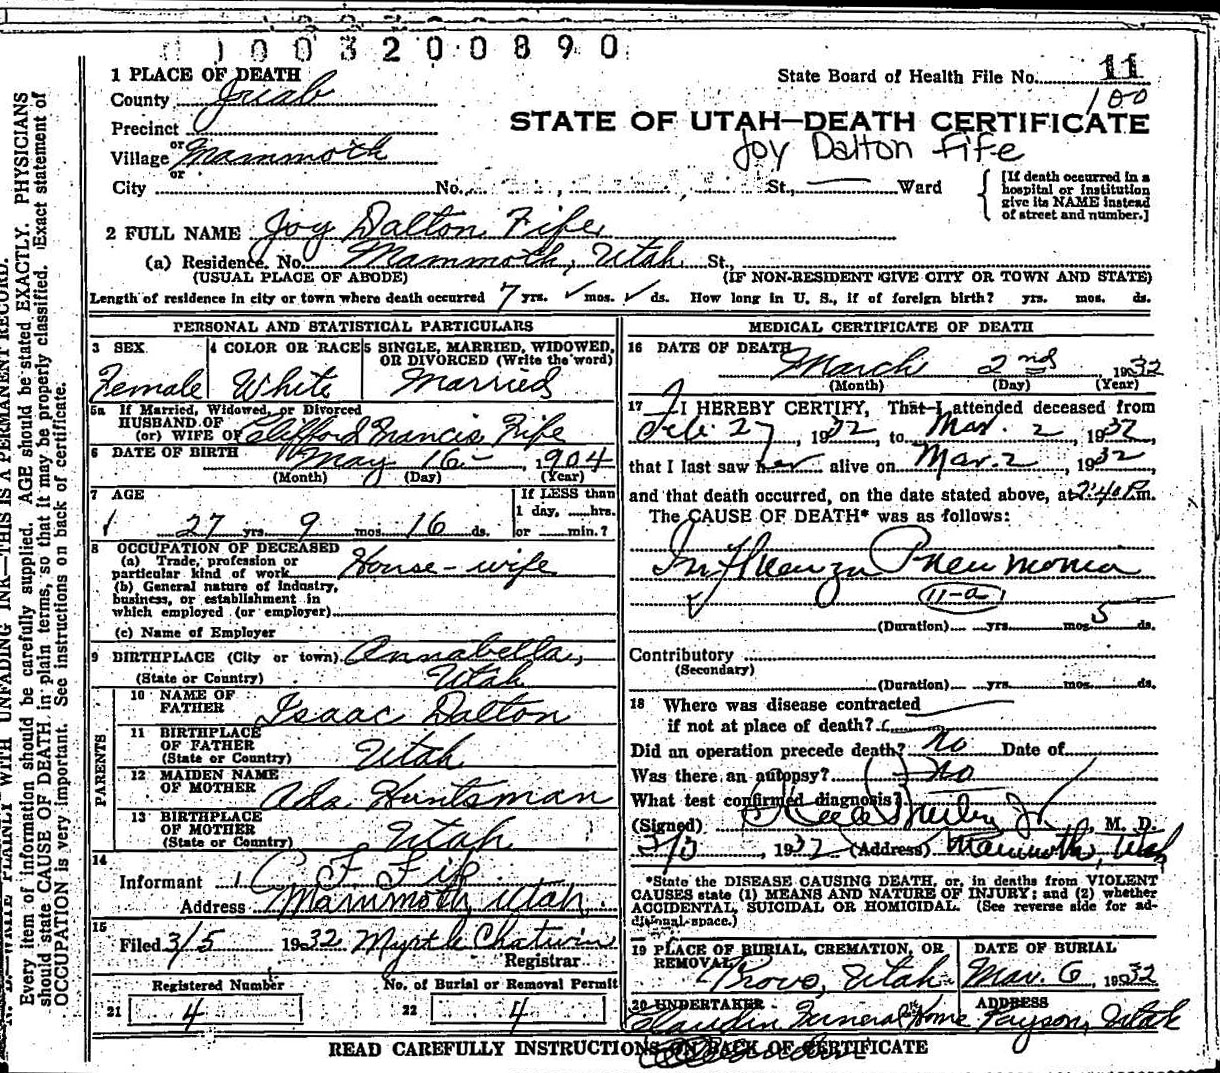 1003200890
1 PLACE OF DEATH
State Board of Health File No. 11
County Juab
100
Precinct
STATE OF UTAH—DEATH CERTIFICATE
or
Village Mammoth
Joy Dalton Fife
or
City No. St., Ward
[If death occurred in a hospital or institution give its NAME instead of street and number.]
2 FULL NAME Joy Dalton Fife
(a) Residence. No. Mammoth, Utah St.,
(USUAL PLACE OF ABODE) (IF NON-RESIDENT GIVE CITY OR TOWN AND STATE)
Length of residence in city or town where death occurred 7 yrs. ✓ mos. ✓ ds. How long in U. S., if of foreign birth? yrs. mos. ds.
PERSONAL AND STATISTICAL PARTICULARS
3 SEX 4 COLOR OR RACE 5 SINGLE, MARRIED, WIDOWED,
OR DIVORCED (Write the word)
Female White Married
5a If Married, Widowed, or Divorced
HUSBAND OF
(or) WIFE OF Clifford Francis Fife
6 DATE OF BIRTH May 16 , 1904
(Month) (Day) (Year)
7 AGE If LESS than
1 day, hrs.
27 yrs. 9 mos. 16 ds. or min.?
8 OCCUPATION OF DECEASED
(a) Trade, profession or
particular kind of work House-wife
(b) General nature of industry,
business, or establishment in
which employed (or employer)
(c) Name of Employer
9 BIRTHPLACE (City or town) Annabella,
(State or Country) Utah
PARENTS
10 NAME OF
FATHER Isaac Dalton
11 BIRTHPLACE
OF FATHER
(State or Country) Utah
12 MAIDEN NAME
OF MOTHER Ada Huntsman
13 BIRTHPLACE
OF MOTHER
(State or Country) Utah
14
Informant C. F. Fife
Address Mammoth, Utah.
15
Filed 3/5 1932 Myrtle Chatwin
Registrar
Registered Number No. of Burial or Removal Permit
21 4 22 4
MEDICAL CERTIFICATE OF DEATH
16 DATE OF DEATH March 2nd 1932
(Month) (Day) (Year)
17 I HEREBY CERTIFY, That I attended deceased from
Feb. 27, 1932, to Mar. 2, 1932,
that I last saw her alive on Mar. 2, 1932,
and that death occurred, on the date stated above, at 2:40 P.m.
The CAUSE OF DEATH* was as follows:
Influenza Pneumonia
11-a
(Duration) yrs. mos. 5 ds.
Contributory
(Secondary)
(Duration) yrs. mos. ds.
18 Where was disease contracted
if not at place of death?
Did an operation precede death? No Date of
Was there an autopsy? No
What test confirmed diagnosis?
(Signed) Jr. M. D.
3/5, 1932 (Address) Mammoth, Utah
*State the DISEASE CAUSING DEATH, or, in deaths from VIOLENT
CAUSES state (1) MEANS AND NATURE OF INJURY; and (2) whether
ACCIDENTAL, SUICIDAL OR HOMICIDAL. (See reverse side for ad-
ditional space.)
19 PLACE OF BURIAL, CREMATION, OR
REMOVAL Provo, Utah
DATE OF BURIAL
Mar. 6, 1932
20 UNDERTAKER ADDRESS
Funeral Home Payson, Utah
READ CAREFULLY INSTRUCTIONS ON BACK OF CERTIFICATE
WRITE PLAINLY WITH UNFADING INK—THIS IS A PERMANENT RECORD.
Every item of information should be carefully supplied. AGE should be stated EXACTLY. PHYSICIANS
should state CAUSE OF DEATH in plain terms, so that it may be properly classified. Exact statement of
OCCUPATION is very important. See instructions on back of certificate.